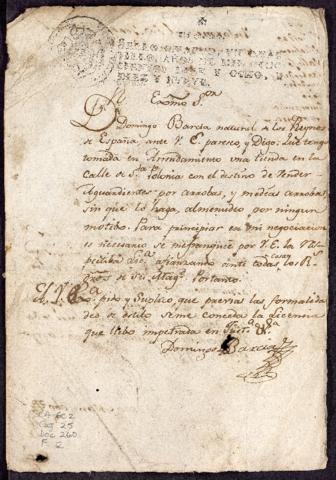 Exc̃mo S.or
D.n Domingo Barcia natural de los Reynos
de España, ante V. E. paresco, y Digo: Que tengo
tomada en Arrendamiento una tienda en la
calle de S.ta Polonia con el destino de Vender
Aguardientes por arrobas, y medias arrobas,
sin que lo haga, al menudeo por ningun
motibo. Para principiar en mi negociacion
es necesario se me franquee por V. E. la
afianzando ante todas cosas los R.s
de Su Mag.d Por tanto
A V. E.a
pido y Suplico, que previas las formalida
des de estilo se me conceda la licencia
que llebo impetrada en Just.a &.a
Domingo Barcia
CA GC2
Caj 25
Doc 260
F 2